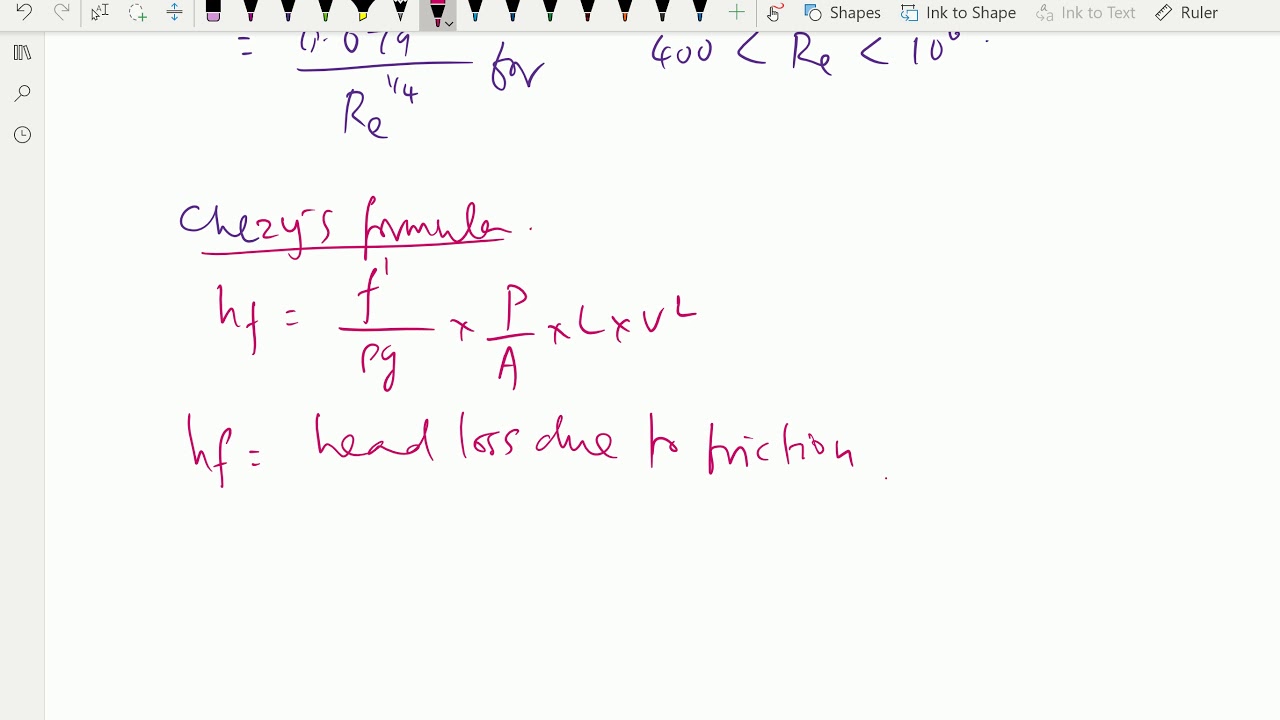 Shapes Ink to Shape Ink to Text Ruler
= 0.079 / Re^1/4 for 400 < Re < 10^6.
Chezy's formula.
hf = f' / ρg × P/A × L × V^2
hf = head loss due to friction.